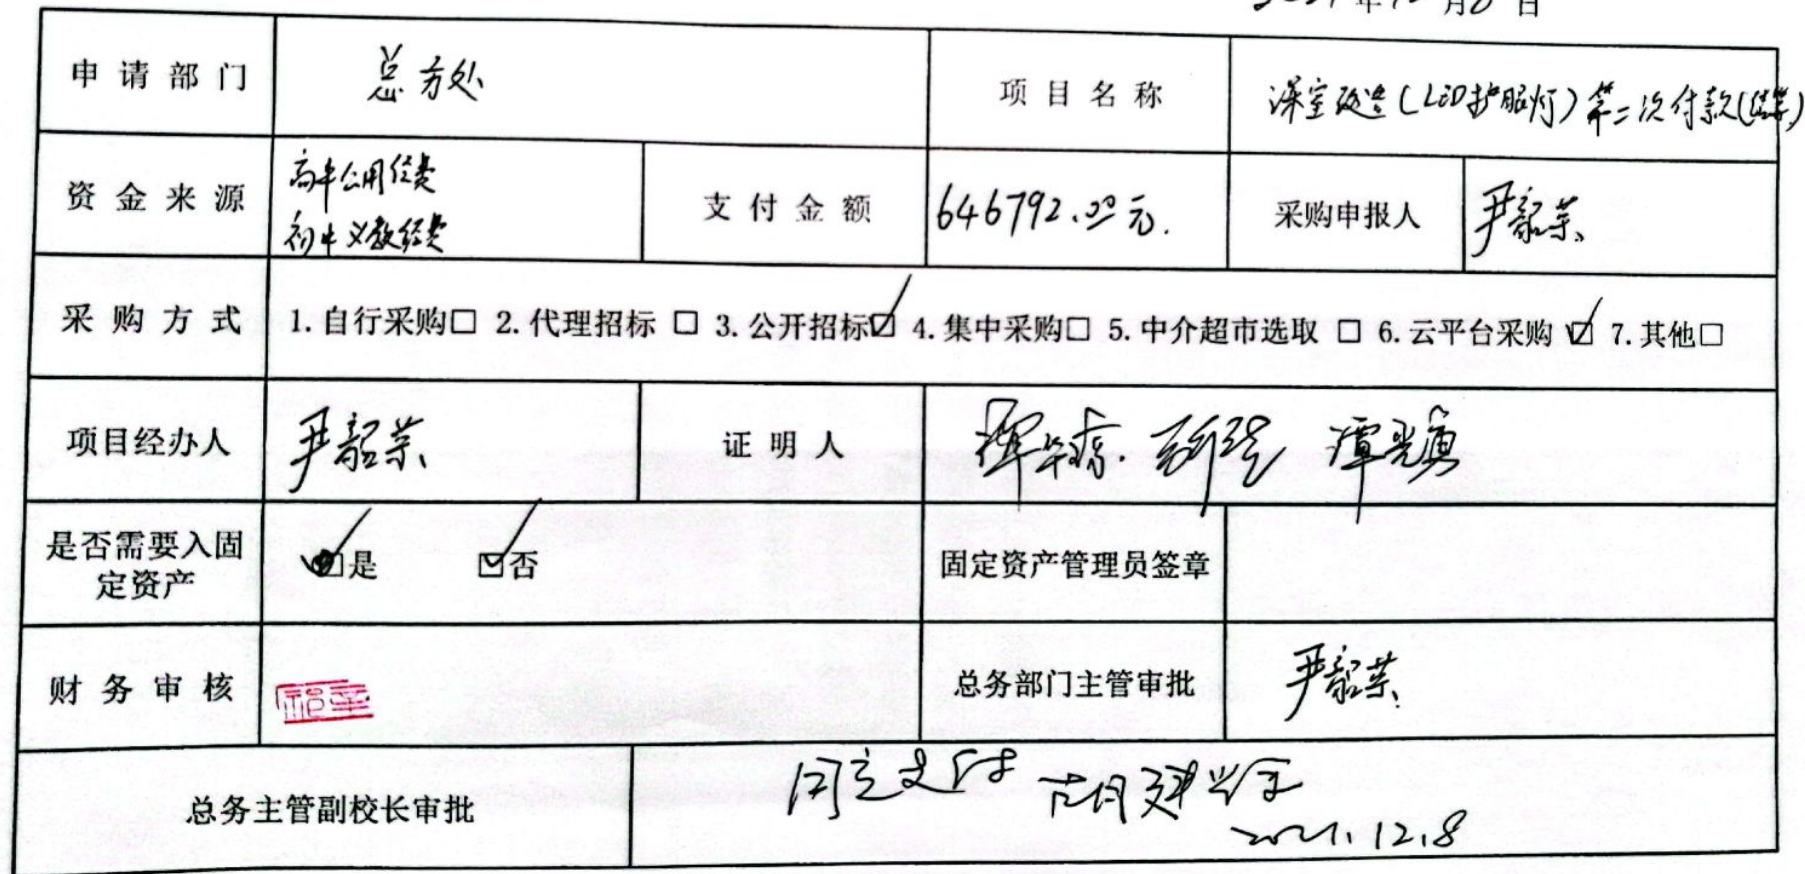 年12月8日
申请部门
总务处
项目名称
课室改造(LED护眼灯)第二次付款(结算)
资金来源
高中公用经费
初中义教经费
支付金额
646792.00元.
采购申报人
尹韶荣
采购方式
1.自行采购□ 2.代理招标 □ 3.公开招标☑ 4.集中采购□ 5.中介超市选取 □ 6.云平台采购 ☑ 7.其他□
项目经办人
尹韶荣
证明人
是否需要入固
定资产
☑是 ☑否
固定资产管理员签章
财务审核
总务部门主管审批
尹韶荣
总务主管副校长审批
同意支付
2021.12.8